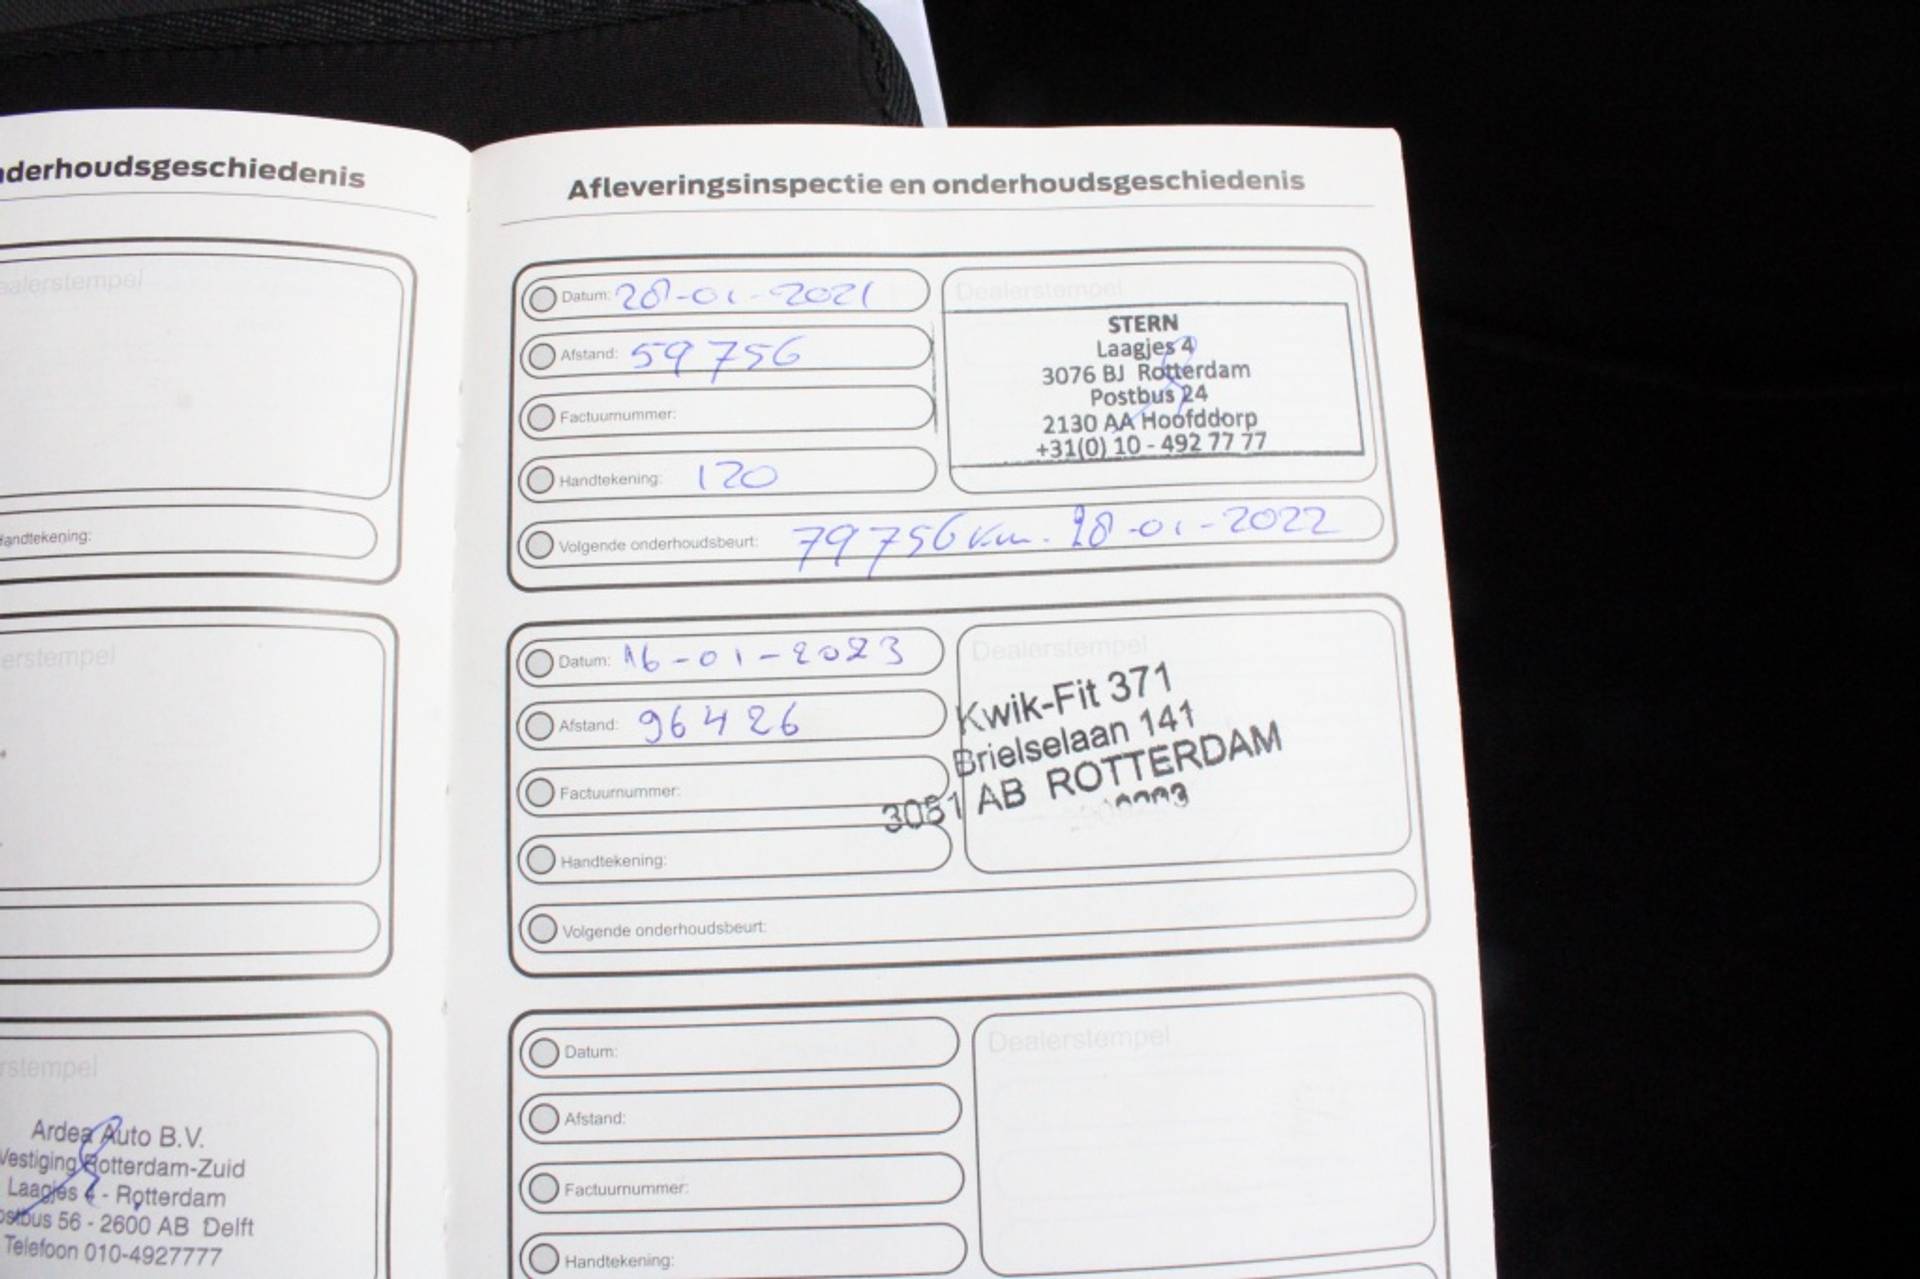 nderhoudsgeschiedenis
ealerstempel
Handtekening:
erstempel
rstempel
Ardea Auto B.V.
Vestiging Rotterdam-Zuid
Laagjes 4 - Rotterdam
ostbus 56 - 2600 AB Delft
Telefoon 010-4927777
Afleveringsinspectie en onderhoudsgeschiedenis
Datum: 28-01-2021
Afstand: 59756
Factuurnummer:
Handtekening: 120
Volgende onderhoudsbeurt: 79756 km. 28-01-2022
Dealerstempel
STERN
Laagjes 4
3076 BJ Rotterdam
Postbus 24
2130 AA Hoofddorp
+31(0) 10 - 492 77 77
Datum: 16-01-2023
Afstand: 96426
Factuurnummer:
Handtekening:
Volgende onderhoudsbeurt:
Dealerstempel
Kwik-Fit 371
Brielselaan 141
3081 AB ROTTERDAM
Datum:
Afstand:
Factuurnummer:
Handtekening:
Dealerstempel